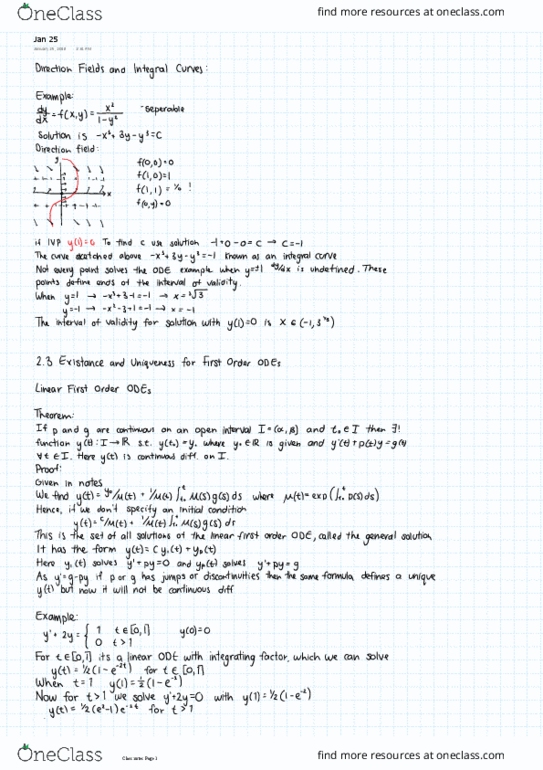 OneClass
find more resources at oneclass.com
Jan 25
Direction Fields and Integral Curves:
Example:
dy/dx = f(x,y) = x²/1-y² - Seperable
Solution is -x³+3y-y³=C
Direction field:
y
x
f(0,0)=0
f(1,0)=1
f(1,1)=1/0 !
f(0,y)=0
if IVP y(1)=0 To find c use solution -1+0-0=C → C=-1
The curve sketched above -x³+3y-y³=-1 known as an integral curve
Not every point solves the ODE example when y=±1 dy/dx is undefined. These
points define ends of the interval of validity.
When y=1 → -x³+3-1=-1 → x=³√3
y=-1 → -x³-3+1=-1 → x=-1
The interval of validity for solution with y(1)=0 is x ∈ (-1, 3^(1/3))
2.3 Existance and Uniqueness for First Order ODEs
Linear First Order ODEs
Theorem:
If p and g are continuous on an open interval I=(α,β) and t₀∈I then ∃!
function y(t): I→ℝ s.t. y(t₀)=y₀ where y₀∈ℝ is given and y'(t)+p(t)y=g(t)
∀t∈I. Here y(t) is continuous diff. on I.
Proof:
Given in notes
We find y(t)= y₀/μ(t) + 1/μ(t) ∫ μ(s)g(s)ds where μ(t)=exp(∫ p(s)ds)
Hence, if we don't specify an initial condition
y(t)= c/μ(t) + 1/μ(t) ∫ μ(s)g(s)ds
This is the set of all solutions of the linear first order ODE, called the general solution
It has the form y(t)= Cy₁(t)+yₚ(t)
Here y₁(t) solves y'+py=0 and yₚ(t) solves y'+py=g
As y'=g-py if p or g has jumps or discontinuities then the same formula defines a unique
y(t) but now it will not be continuous diff
Example:
y'+2y= { 1 t∈[0,1] y(0)=0
0 t>1
For t∈[0,1] its a linear ODE with integrating factor, which we can solve
y(t)=½(1-e^(-2t)) for t∈[0,1]
When t=1 y(1)=½(1-e^(-2))
Now for t>1 we solve y'+2y=0 with y(1)=½(1-e^(-2))
y(t)=½(e²-1)e^(-2t) for t>1
OneClass
Class notes Page 1
find more resources at oneclass.com